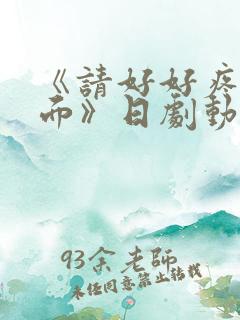 《請好好疼
而》日劇動
93余老師
未經同意禁止轉載